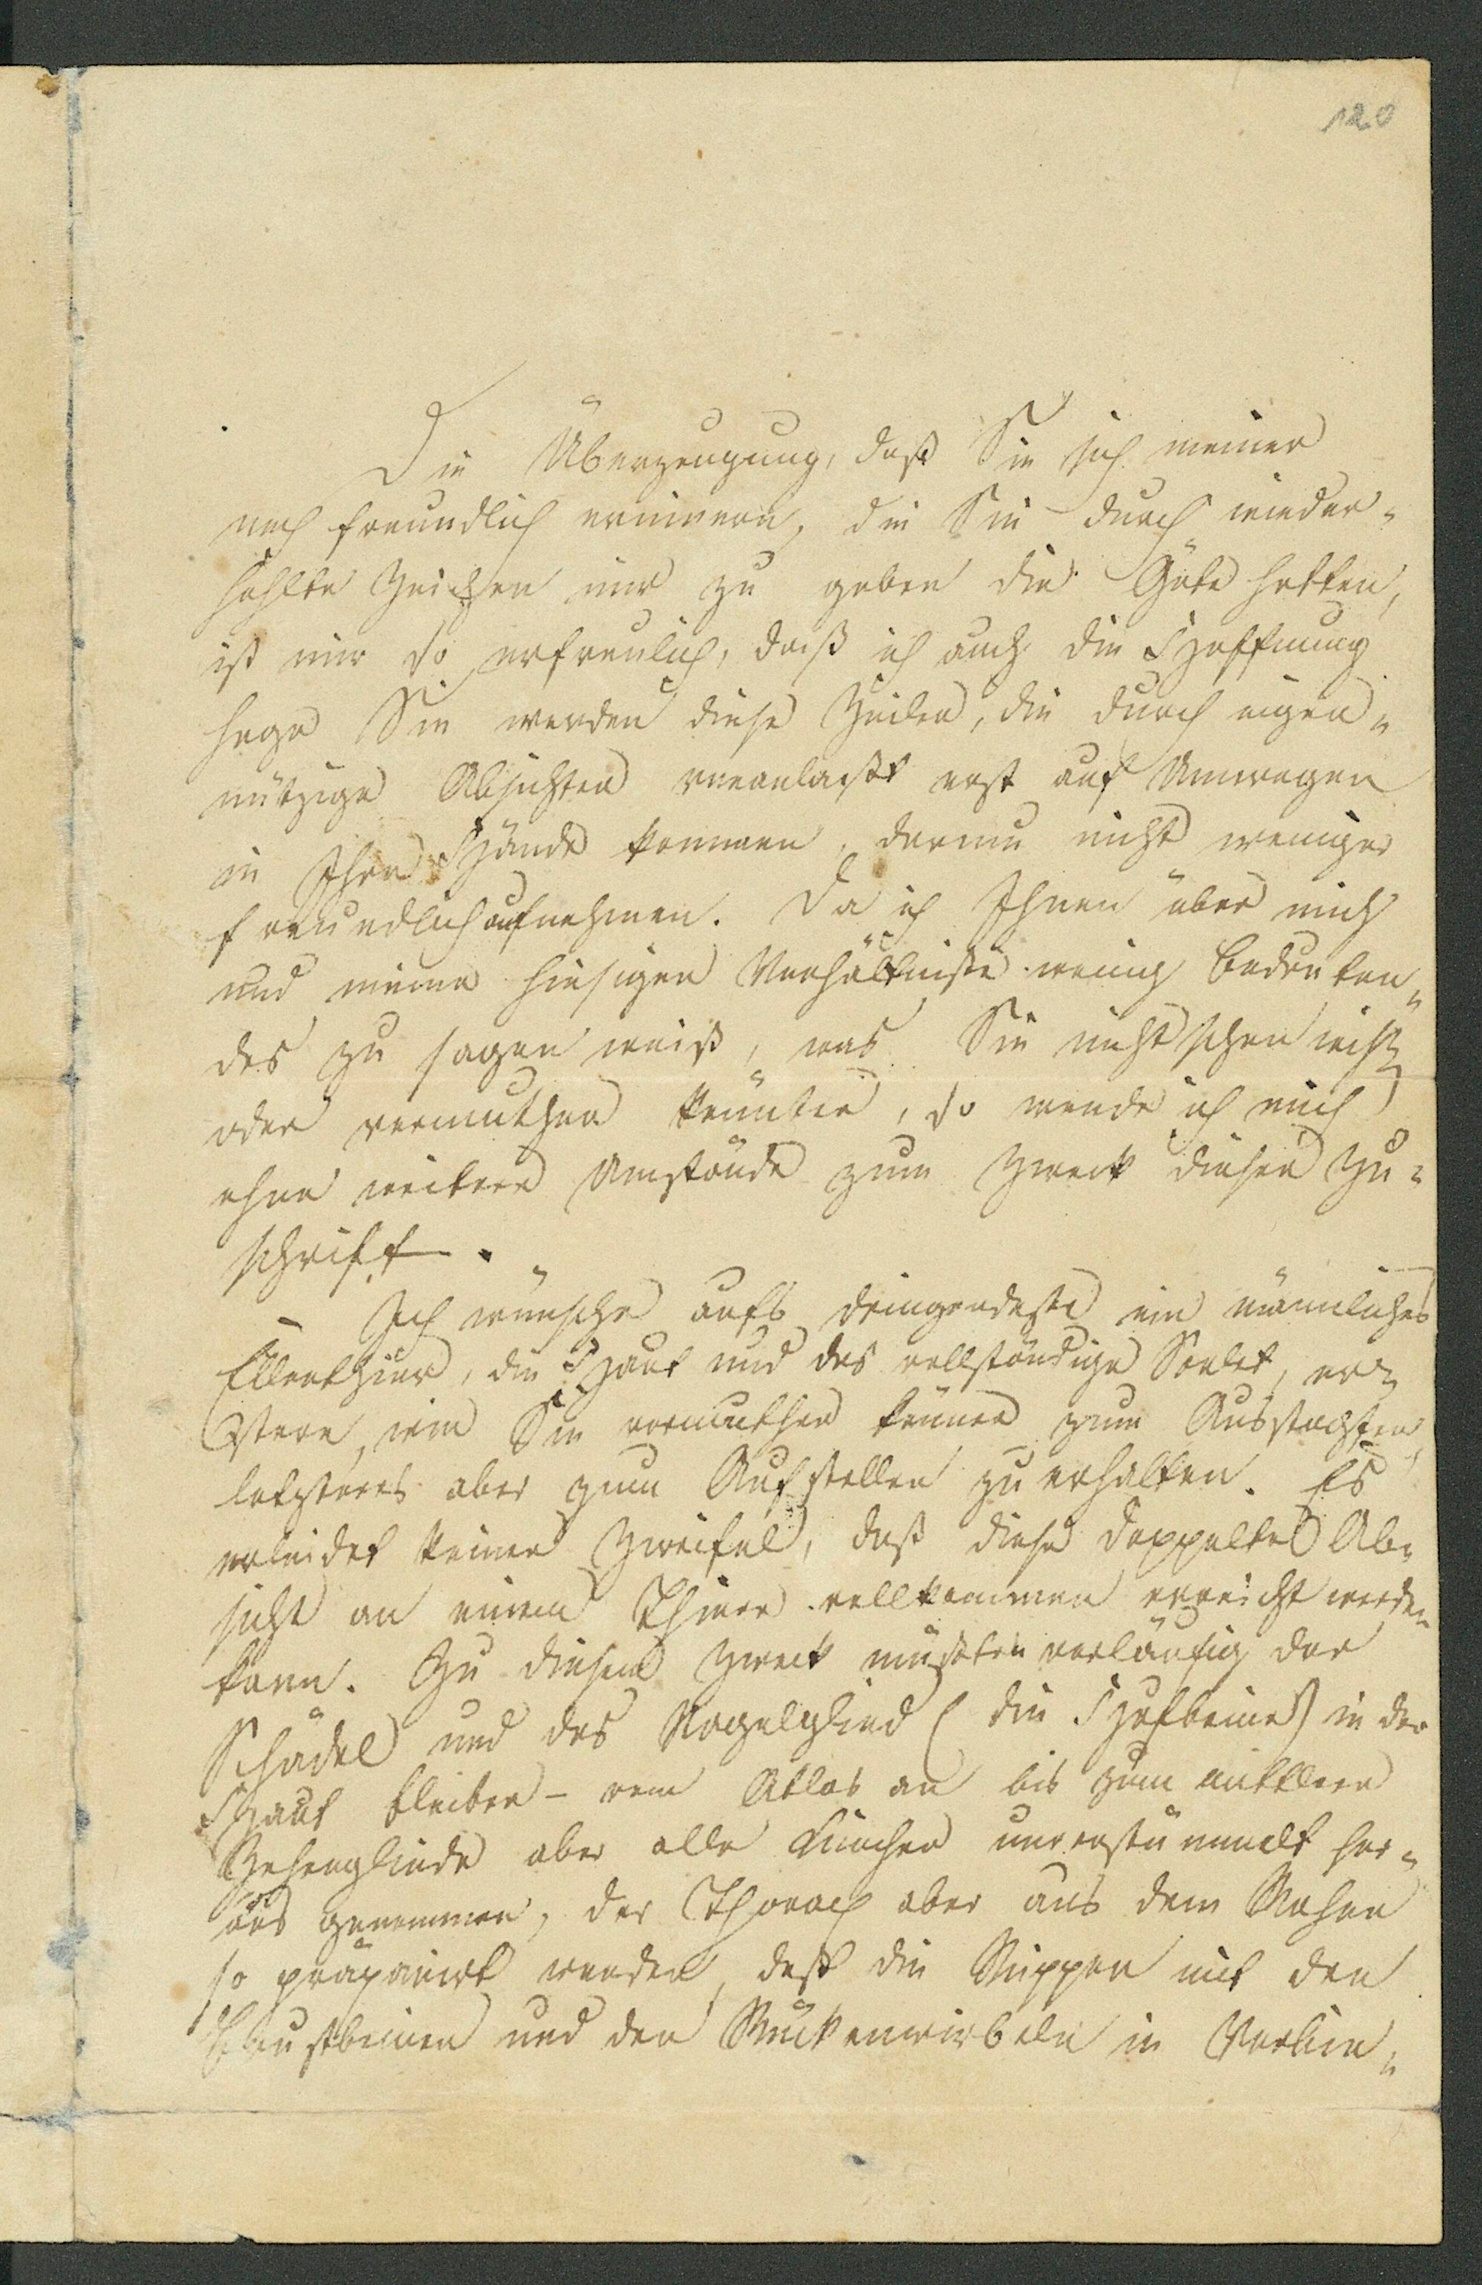 120
Die Überzeugung, daß Sie sich meiner
noch freundlich erinnern, die Sie durch wieder-
hohlte Zeichen mir zu geben die Güte hatten,
ist mir so erfreulich, daß ich auch die Hoffnung
hege Sie werden diese Zeilen, die durch eigen-
nützige Absichten veranlaßt erst auf Umwegen
in Ihre Hände kommen, darum nicht weniger
freundlich aufnehmen. Da ich Ihnen über mich
und meine hiesigen Verhältniße wenig Bedeuten-
des zu sagen weiß, was Sie nicht schon
oder vermuthen könnten, so wende ich mich
ohne weitere Umstände zum Zweck dieser Zu-
schrift.
Ich wünsche aufs dringendste ein männliches
Ellenthier, die Haut und das vollständige Scelet, er-
stere, wie Sie vermuthen können zum Ausstopfen,
letzteres aber zum Aufstellen zu erhalten. Es
erleidet keinen Zweifel, daß diese doppelte Ab-
sicht an einem Thiere vollkommen erreicht werden
kann. Zu diesem Zweck müßten vorläufig der
Schädel und das Nagelglied (die Hufbeine) in der
Haut bleiben - vom Atlas an bis zum mittleren
Zehengliede aber alle Knochen unverstümmelt her-
aus genommen, der Thorax aber aus dem Rohen
so präparirt werden, daß die Rippen mit den
Brustbeinen und den Rückenwirbeln in Verbin-